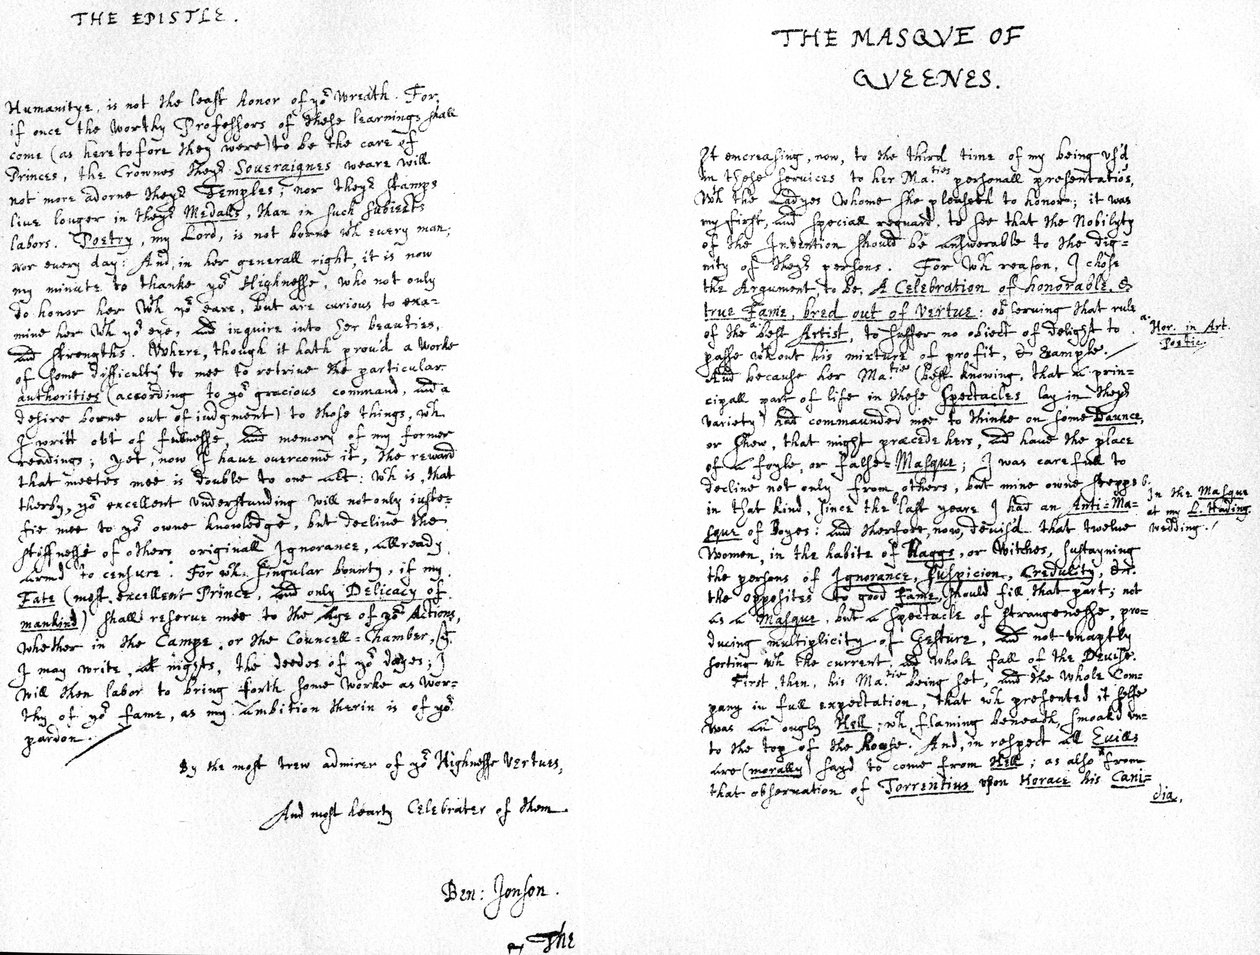 THE EPISTLE.
Humanitye, is not the least honor of yor Wreath. For,
if once the Worthy Professors of these learnings shall
come (as heretofore they were) to be the care of
Princes, the Crownes theyr Soueraignes weare will
not more adorne theyr Temples; nor theyr stamps
liue longer in theyr Medalls, than in such Subiects
labors. Poetry, my Lord, is not borne wth euery man;
Nor euery day: And, in her generall right, it is now
my minute to thanke yor Highnesse, who not only
do honor her wth yor eare, but are curious to exa-
mine her wth yor eye, and inquire into her beauties,
and strengths. Where, though it hath prou'd a Worke
of some difficulty to mee to retriue the particular
authorities (according to yor gracious command, and a
desire borne out of iudgment) to those things, wch
I writt out of fullnesse, and memory of my former
readings; yet, now I haue ouercome it, the reward
that meetes mee is double to one act: wch is, that
therby, yor excellent vnderstanding will not only iusti-
fie mee to yor owne knowledge, but decline the
stiffnesse of others originall Ignorance, allready
armd to censure. For wch singular bounty, if my
Fate (most excellent Prince, and only Delicacy of
mankind) shall reserue mee to the Age of yor Actions,
whether in the Campe, or the Councell-Chamber, yt
I may write, at nights, the deedes of yor dayes; I
will then labor to bring forth some Worke as wor-
thy of yor fame, as my ambition therin is of yor
pardon.
By the most trew admirer of yor Highnesse Vertues,
And most hearty Celebrater of them
Ben: Jonson.
The
THE MASQVE OF
QVEENES.
It encreasing, now, to the third time of my being vs'd
in these seruices to her Ma.ties personall presentatiõs,
wth the Ladyes whome she pleaseth to honor; it was
my first, and speciall reguard, to see that the Nobilyty
of the Inuention should be answerable to the dig-
nity of theyr persons. For wch reason, I chose
the Argument, to be, A Celebration of honorable, &
true Fame, bred out of Vertue: obseruing that rule
of the a best Artist, to suffer no object of delight to
passe wthout his mixture of profit, & example.
a. Hor. in Art.
Poetic.
And because her Ma.tie (best knowing, that a prin-
cipall part of life in these Spectacles lay in theyr
variety) had commaunded mee to thinke on some Daunce,
or shew, that might præcede hers, and haue the place
of a foyle, or false-Masque; I was carefull to
decline not only from others, but mine owne stepps
in that kind, since the b last yeare I had an Anti-Ma-
sque of Boyes: and therfore, now, deuis'd that twelue
b. In the Masque
at my L. Hading.
wedding.
Women, in the habite of Haggs, or Witches, sustayning
the persons of Ignorance, Suspicion, Credulity, &c.
the opposites to good Fame, should fill that part; not
as a Masque, but a spectacle of strangenesse, pro-
ducing multiplicity of Gesture, and not vnaptly
sorting wth the current, and whole fall of the Deuise.
First, then, his Ma.tie being set, and the whole Com-
pany in full expectation, that wch presented it selfe
was an ougly Hell; wch, flaming beneath, smoakd vn-
to the top of the Roofe. And, in respect all Euills
are (morally) sayd to come from Hell; as also from
that obseruation of Torrentius vpon Horace his Cani-
dia,